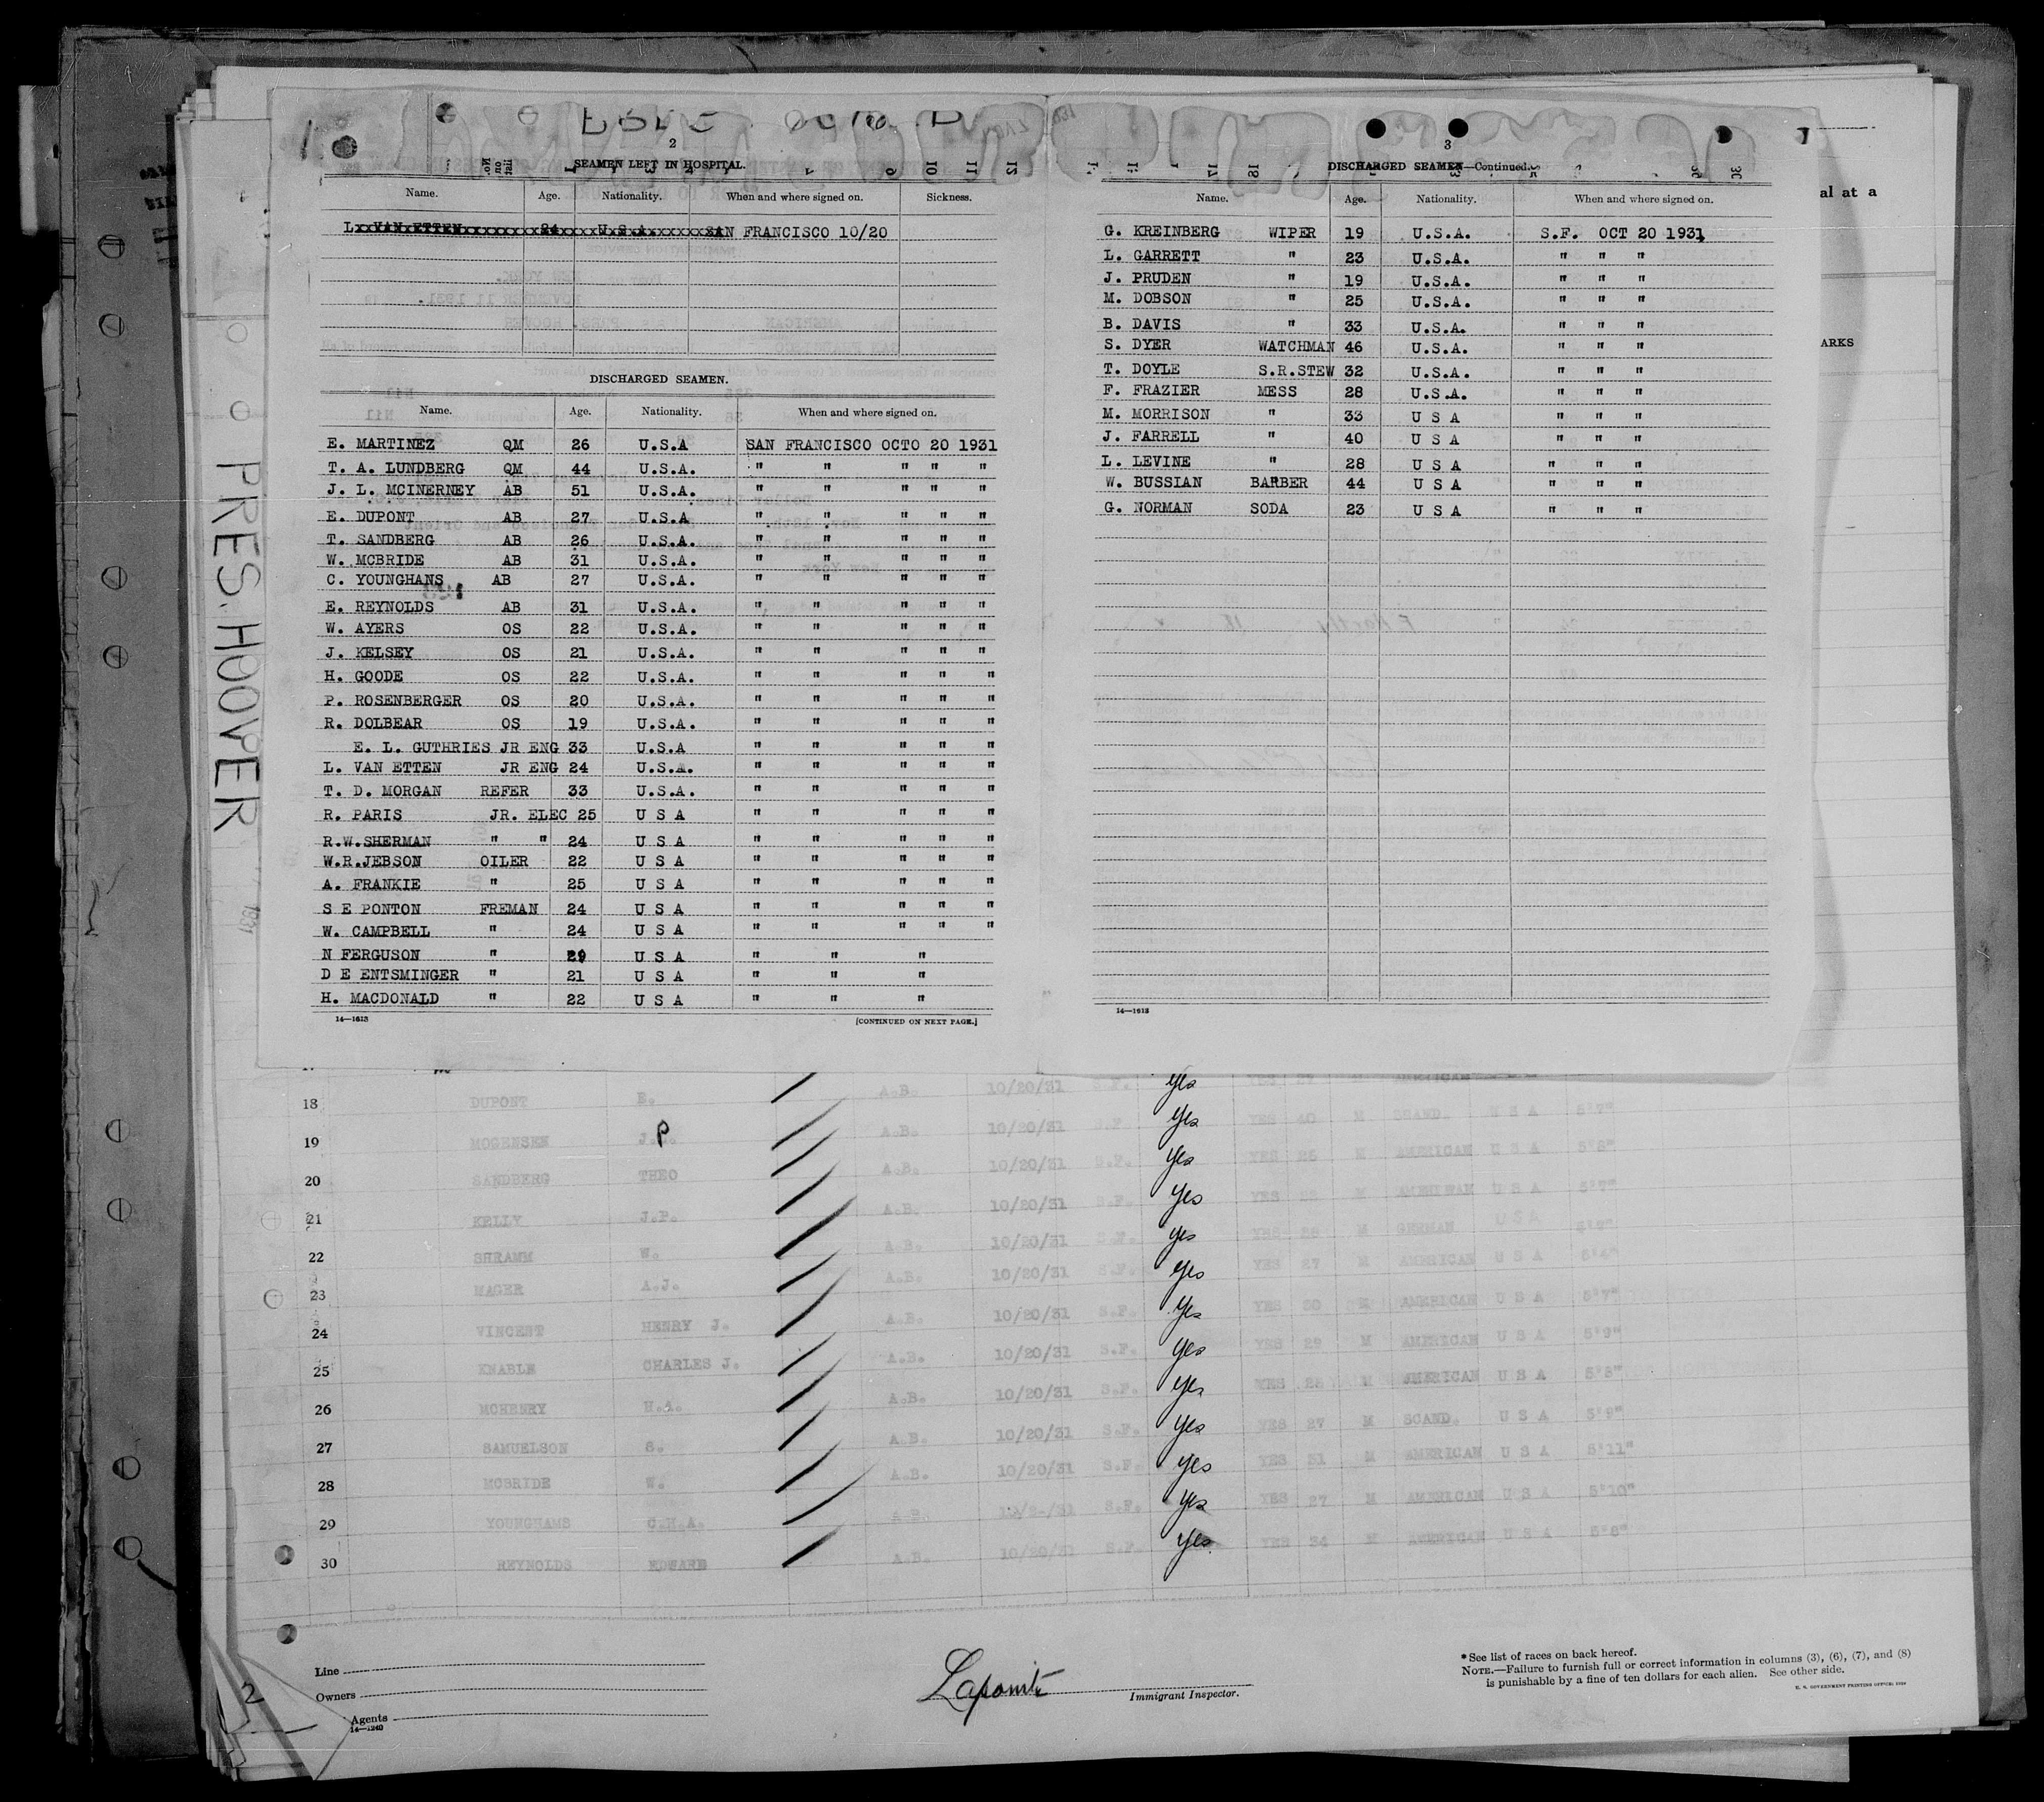 2
SEAMEN LEFT IN HOSPITAL.
Name. Age. Nationality. When and where signed on. Sickness.
L VAN ETTEN 24 U.S.A. SAN FRANCISCO 10/20
DISCHARGED SEAMEN.
Name. Age. Nationality. When and where signed on.
E. MARTINEZ QM 26 U.S.A SAN FRANCISCO OCTO 20 1931
T. A. LUNDBERG QM 44 U.S.A. " " " " "
J. L. MCINERNEY AB 51 U.S.A. " " " " "
E. DUPONT AB 27 U.S.A " " " " "
T. SANDBERG AB 26 U.S.A. " " " " "
W. MCBRIDE AB 31 U.S.A. " " " " "
C. YOUNGHANS AB 27 U.S.A. " " " " "
E. REYNOLDS AB 31 U.S.A. " " " " "
W. AYERS OS 22 U.S.A. " " " " "
J. KELSEY OS 21 U.S.A. " " " " "
H. GOODE OS 22 U.S.A. " " " " "
P. ROSENBERGER OS 20 U.S.A. " " " " "
R. DOLBEAR OS 19 U.S.A. " " " " "
E. L. GUTHRIES JR ENG 33 U.S.A " " " " "
L. VAN ETTEN JR ENG 24 U.S.A. " " " " "
T. D. MORGAN REFER 33 U.S.A. " " " " "
R. PARIS JR. ELEC 25 U S A " " " " "
R.W.SHERMAN " " 24 U S A " " " " "
W.R.JEBSON OILER 22 U S A " " " " "
A. FRANKIE " 25 U S A " " " " "
S E PONTON FREMAN 24 U S A " " " " "
W. CAMPBELL " 24 U S A " " " " "
N FERGUSON " 29 U S A " " "
D E ENTSMINGER " 21 U S A " " "
H. MACDONALD " 22 U S A " " "
14—1613 [CONTINUED ON NEXT PAGE.]
3
DISCHARGED SEAMEN—Continued.
Name. Age. Nationality. When and where signed on.
G. KREINBERG WIPER 19 U.S.A. S.F. OCT 20 1931
L. GARRETT " 23 U.S.A. " " "
J. PRUDEN " 19 U.S.A. " " "
M. DOBSON " 25 U.S.A. " " "
B. DAVIS " 33 U.S.A. " " "
S. DYER WATCHMAN 46 U.S.A. " " "
T. DOYLE S.R.STEW 32 U.S.A. " " "
F. FRAZIER MESS 28 U.S.A. " " "
M. MORRISON " 33 U S A " " "
J. FARRELL " 40 U S A " " "
L. LEVINE " 28 U S A " " "
W. BUSSIAN BARBER 44 U S A " " "
G. NORMAN SODA 23 U S A " " "
14—1613
al at a
ARKS
PRES. HOOVER
18 DUPONT E. A.B. 10/20/31 S.F. yes YES 27 M AMERICAN
19 MOGENSEN J.P. A.B. 10/20/31 S.F. yes YES 40 M SCAND. U S A 5'7"
20 SANDBERG THEO A.B. 10/20/31 S.F. yes YES 26 M AMERICAN U S A 5'8"
21 KELLY J.P. A.B. 10/20/31 S.F. yes YES M AMERICAN U S A 5'7"
22 SHRAMM W. A.B. 10/20/31 S.F. yes YES 28 M GERMAN U S A
23 MAGER A.J. A.B. 10/20/31 S.F. yes YES 27 M AMERICAN U S A 5'4"
24 VINCENT HENRY J. A.B. 10/20/31 S.F. yes YES 30 M AMERICAN U S A 5'7"
25 KNABLE CHARLES J. A.B. 10/20/31 S.F. yes YES 29 M AMERICAN U S A 5'9"
26 MCHENRY H.A. A.B. 10/20/31 S.F. yes YES 25 M AMERICAN U S A 5'8"
27 SAMUELSON S. A.B. 10/20/31 S.F. yes YES 27 M SCAND. U S A 5'9"
28 MCBRIDE W. A.B. 10/20/31 S.F. yes YES 31 M AMERICAN U S A 5'11"
29 YOUNGHAMS C.H.A. A.B. 10/2-/31 S.F. yes YES 27 M AMERICAN U S A 5'10"
30 REYNOLDS EDWARD A.B. 10/20/31 S.F. yes YES 34 M AMERICAN U S A 5'8"
Line
Owners
Agents
14—1240
2
Immigrant Inspector.
* See list of races on back hereof.
NOTE.—Failure to furnish full or correct information in columns (3), (6), (7), and (8)
is punishable by a fine of ten dollars for each alien. See other side.
U. S. GOVERNMENT PRINTING OFFICE: 1929